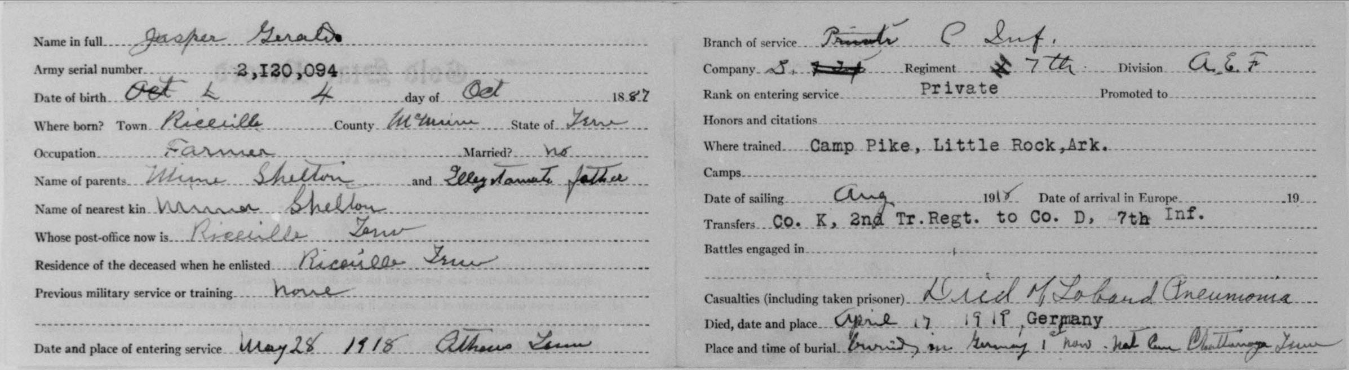 Name in full Jasper Gerald
Army serial number 2,120,094
Date of birth Oct 4 day of Oct 1887
Where born? Town Riceville County McMinn State of Tenn
Occupation Farmer Married? no
Name of parents Shelton and father
Name of nearest kin Shelton
Whose post-office now is Riceville Tenn
Residence of the deceased when he enlisted Riceville Tenn
Previous military service or training none
Date and place of entering service May 28 1918 Athens Tenn
Branch of service Private C Inf.
Company Regiment 7th Division A.E.F
Rank on entering service Private Promoted to
Honors and citations
Where trained Camp Pike, Little Rock,Ark.
Camps
Date of sailing Aug 1918 Date of arrival in Europe 19
Transfers Co. K, 2nd Tr.Regt. to Co. D, 7th Inf.
Battles engaged in
Casualties (including taken prisoner) Died of Pneumonia
Died, date and place April 17 1919, Germany
Place and time of burial Buried in Germany 1st now Nat Cem Chattanooga Tenn